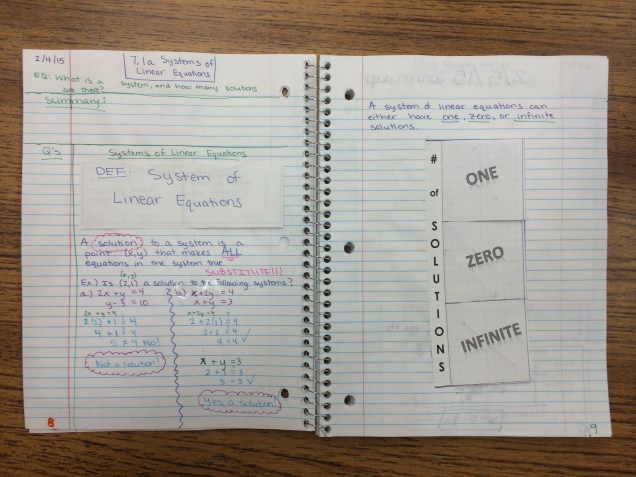 2/4/15
7.1a Systems of
Linear Equations
EQ: What is a system, and how many solutions
are there?
Summary:
Q's
Systems of Linear Equations
DEF: System of
Linear Equations
A solution to a system is a
point (x,y) that makes ALL
equations in the system true
SUBSTITUTE!!!
(x,y)
Ex.) Is (2,1) a solution to the following systems?
a.) 2x+y=4
y-3=10
2x+y=4
2(2)+1=4
4+1=4
5≠4 No!
Not a solution!
b.) x+2y=4
x+y=3
x+2y=4
2+2(1)=4
2+2=4
4=4 ✓
x+y=3
2+1=3
3=3 ✓
Yes a solution!
8
A system of linear equations can
either have one, zero, or infinite
solutions.
# of SOLUTIONS
ONE
ZERO
INFINITE
9